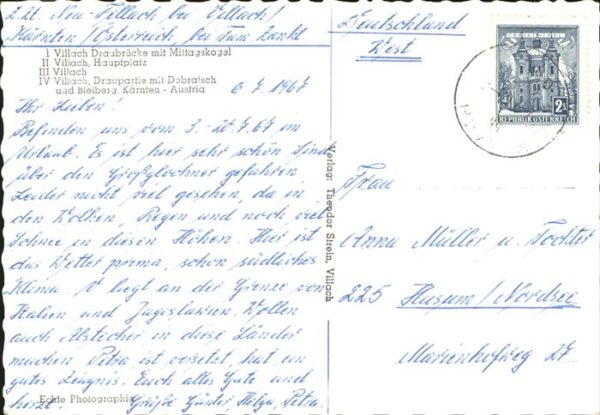 z. Zt. Neu-Villach bei Villach/
Kärnten/Österreich, bei Fam. Zankl
I Villach Draubrücke mit Mittagskogel
II Villach, Hauptplatz
III Villach
IV Villach, Draupartie mit Dobratsch
und Bleiberg, Kärnten - Austria
6.7.1967
Ihr Lieben!
Befinden uns vom 3.-20.7.67 im
Urlaub. Es ist hier sehr schön. Sind
über den Großglockner gefahren,
Leider nicht viel gesehen, da in
den Wolken, Regen und noch viel
Schnee in diesen Höhen. Hier ist
das Wetter prima, schon südliches
Klima. V. liegt an der Grenze von
Italien und Jugoslawien. Wollen
auch Abstecher in diese Länder
machen. Petra ist versetzt, hat ein
gutes Zeugnis. Euch alles Gute und
herzl. Grüße Günter Helga, Petra.
Echte Photographie
Verlag: Theodor Strein, Villach
Deutschland
West
2 S
REPUBLIK ÖSTERREICH
Frau
Anna Müller u. Tochter
225 Husum/Nordsee
Marienhofweg 27